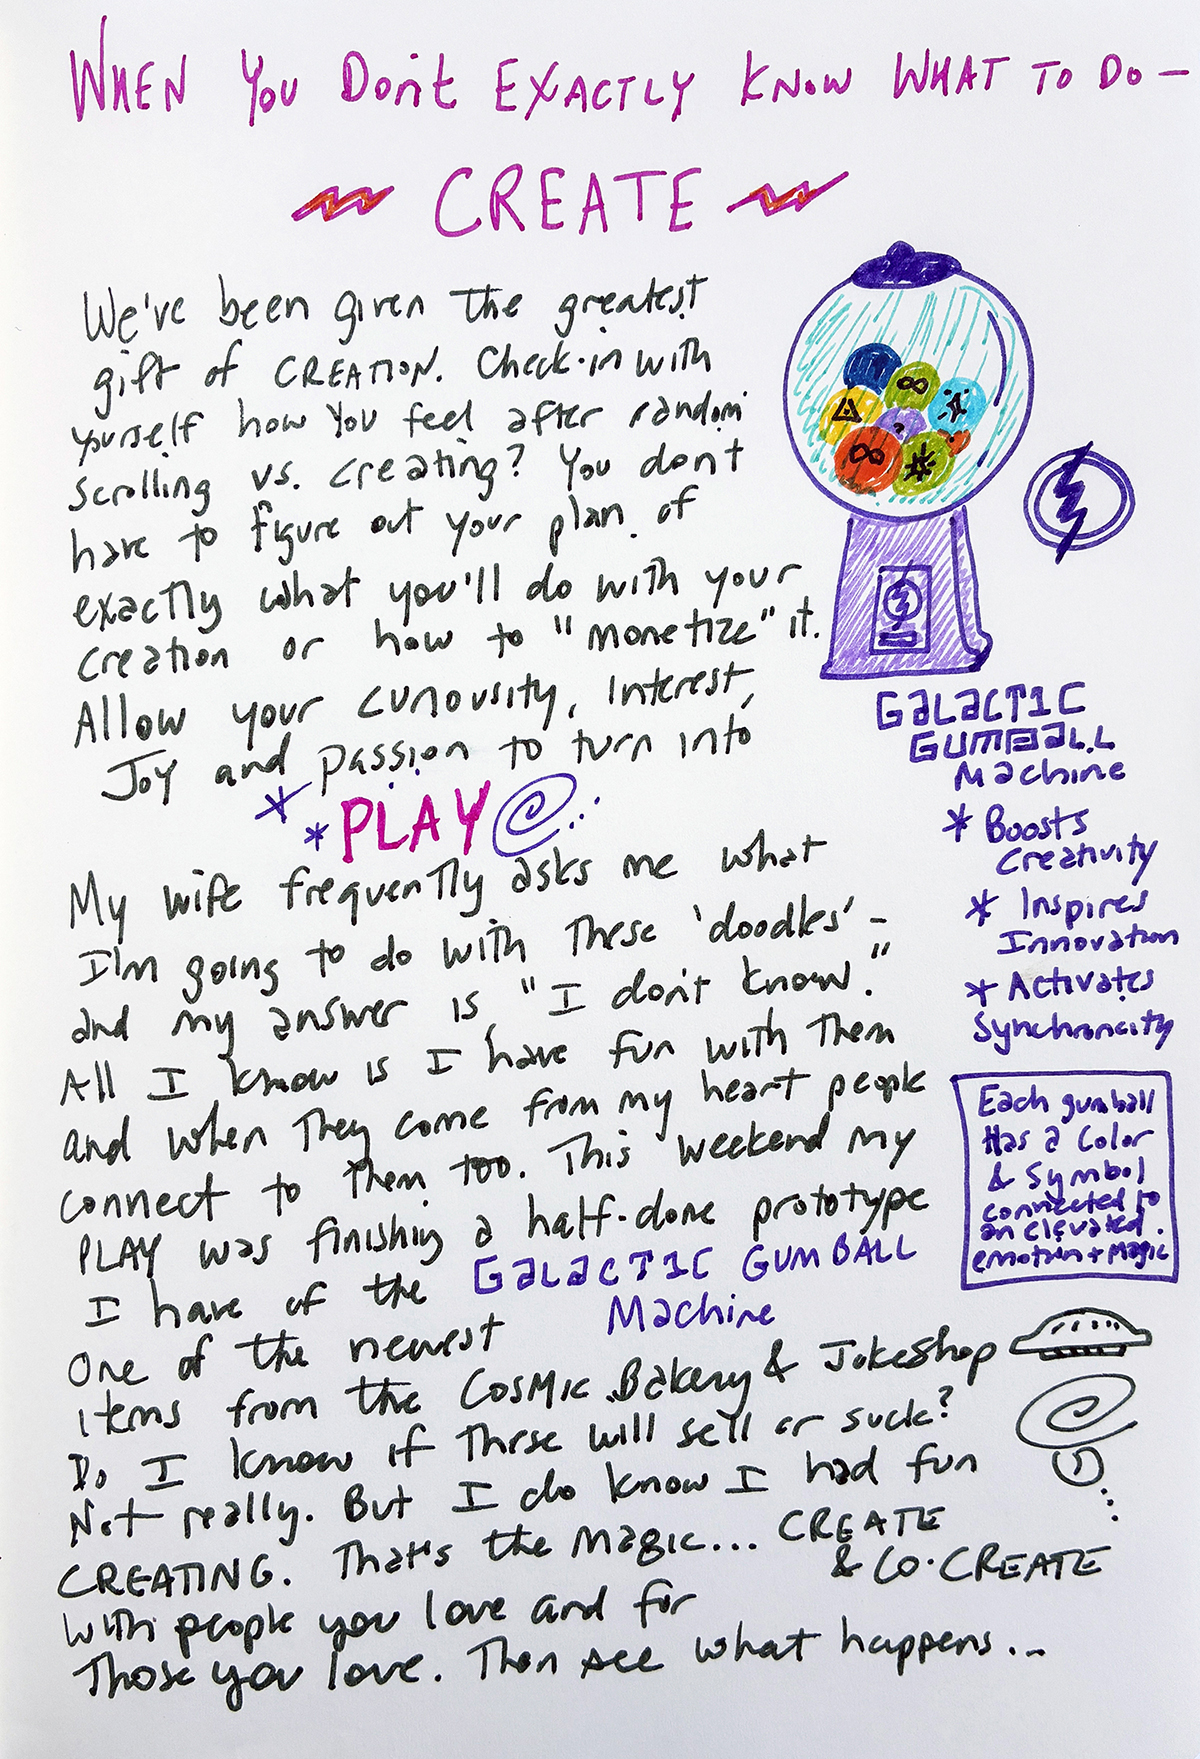 WHEN YOU DON'T EXACTLY KNOW WHAT TO DO —
CREATE
We've been given the greatest
gift of CREATION. Check-in with
yourself how you feel after random
scrolling vs. creating? You don't
have to figure out your plan of
exactly what you'll do with your
creation or how to "monetize" it.
Allow your curiousity, interest,
Joy and passion to turn into
* * PLAY
My wife frequently asks me what
I'm going to do with these 'doodles' -
and my answer is, "I don't know."
All I know is I have fun with them
and when they come from my heart people
connect to them too. This weekend my
PLAY was finishing a half-done prototype
I have of the GALACTIC GUMBALL
Machine
One of the newest
items from the COSMIC Bakery & JokeShop
Do I know if these will sell or suck?
Not really. But I do know I had fun
CREATING. That's the Magic... CREATE
& CO-CREATE
with people you love and for
those you love. Then see what happens...
GALACTIC
GUMBALL
Machine
* Boosts
Creativity
* Inspires
Innovation
* Activates
Synchronicity
Each gumball
Has a Color
& Symbol
connected to
an elevated
emotion + Magic